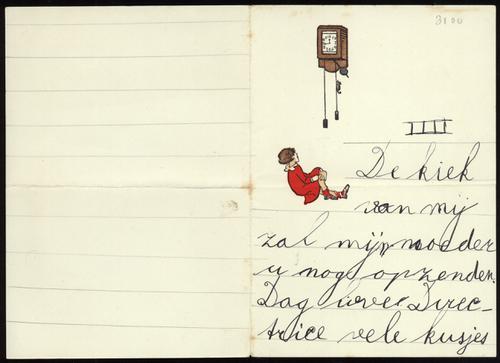 3100
De kiek
van mij
zal mijn moeder
u nog opzenden.
Dag lieve Direc-
trice vele kusjes